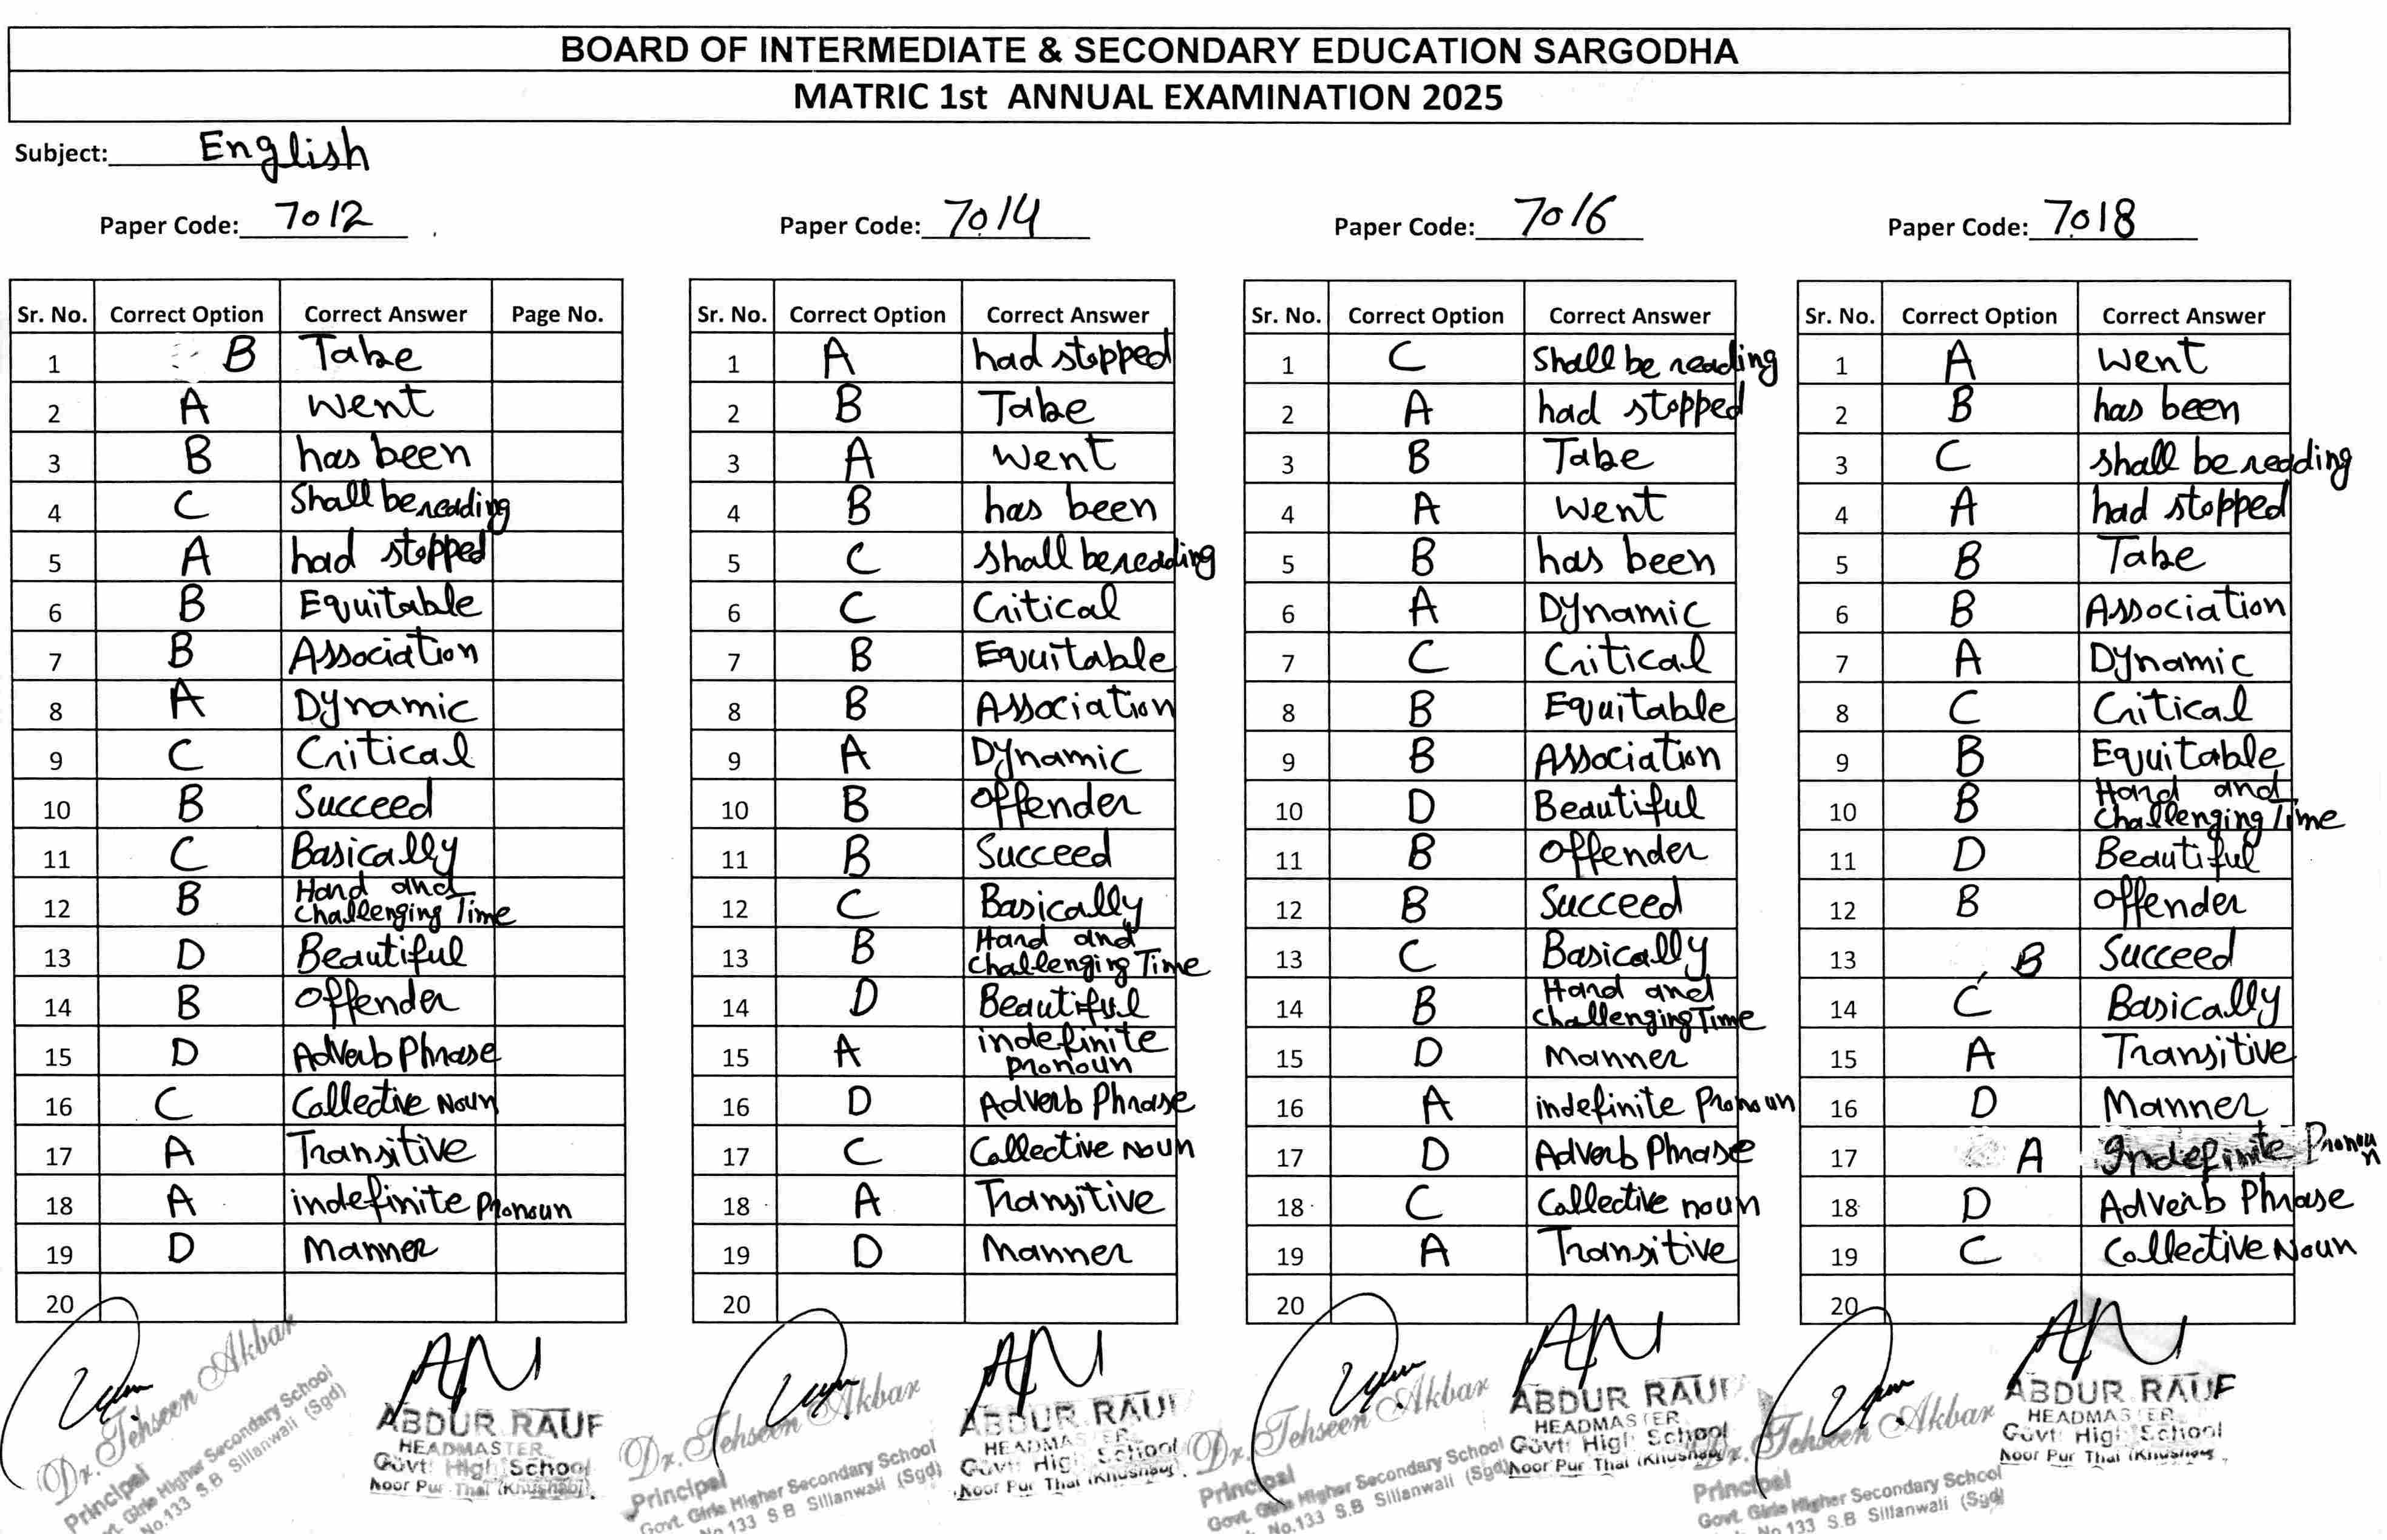 BOARD OF INTERMEDIATE & SECONDARY EDUCATION SARGODHA
MATRIC 1st ANNUAL EXAMINATION 2025
Subject: English
Paper Code: 7012
Sr. No. Correct Option Correct Answer Page No.
1 B Take
2 A went
3 B has been
4 C Shall be reading
5 A had stopped
6 B Equitable
7 B Association
8 A Dynamic
9 C Critical
10 B Succeed
11 C Basically
12 B Hard and
challenging Time
13 D Beautiful
14 B offender
15 D Adverb Phrase
16 C Collective Noun
17 A Transitive
18 A indefinite Pronoun
19 D Manner
20
Paper Code: 7014
Sr. No. Correct Option Correct Answer
1 A had stopped
2 B Take
3 A went
4 B has been
5 C shall be reading
6 C Critical
7 B Equitable
8 B Association
9 A Dynamic
10 B offender
11 B Succeed
12 C Basically
13 B Hard and
challenging Time
14 D Beautiful
15 A indefinite
pronoun
16 D Adverb Phrase
17 C Collective Noun
18 A Transitive
19 D Manner
20
Paper Code: 7016
Sr. No. Correct Option Correct Answer
1 C Shall be reading
2 A had stopped
3 B Take
4 A went
5 B has been
6 A Dynamic
7 C Critical
8 B Equitable
9 B Association
10 D Beautiful
11 B offender
12 B Succeed
13 C Basically
14 B Hard and
challenging Time
15 D Manner
16 A indefinite Pronoun
17 D Adverb Phrase
18 C Collective noun
19 A Transitive
20
Paper Code: 7018
Sr. No. Correct Option Correct Answer
1 A went
2 B has been
3 C shall be reading
4 A had stopped
5 B Take
6 B Association
7 A Dynamic
8 C Critical
9 B Equitable
10 B Hard and
challenging Time
11 D Beautiful
12 B offender
13 B Succeed
14 C Basically
15 A Transitive
16 D Manner
17 A Indefinite Pronoun
18 D Adverb Phrase
19 C Collective Noun
20
Dr. Tehseen Akbar
Principal
Govt. Girls Higher Secondary School
No.133 S.B Sillanwali (Sgd)
ABDUR RAUF
HEADMASTER
Govt: High School
Noor Pur Thal (Khushab)
Dr. Tehseen Akbar
Principal
Govt. Girls Higher Secondary School
No.133 S.B Sillanwali (Sgd)
ABDUR RAUF
HEADMASTER
Govt: High School
Noor Pur Thal (Khushab)
Dr. Tehseen Akbar
Principal
Govt. Girls Higher Secondary School
No.133 S.B Sillanwali (Sgd)
ABDUR RAUF
HEADMASTER
Govt: High School
Noor Pur Thal (Khushab)
Dr. Tehseen Akbar
Principal
Govt. Girls Higher Secondary School
No.133 S.B Sillanwali (Sgd)
ABDUR RAUF
HEADMASTER
Govt: High School
Noor Pur Thal (Khushab)